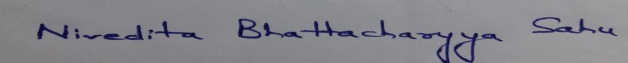 Nivedita Bhattacharyya Sahu